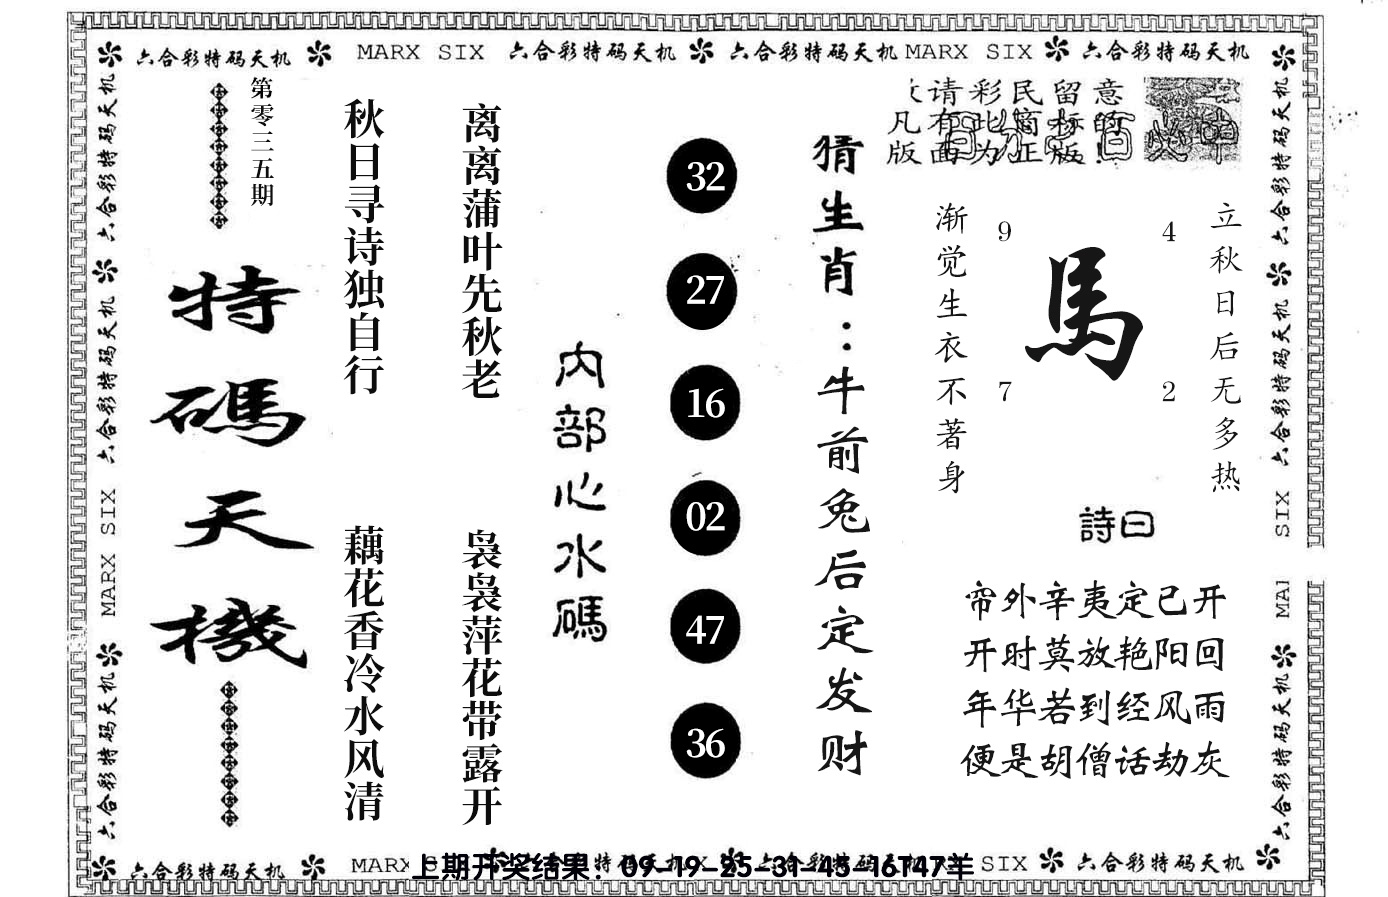 六合彩特码天机 MARX SIX 六合彩特码天机 六合彩特码天机 MARX SIX 六合彩特码天机
六合彩特码天机
六合彩特码天机
MARX SIX
六合彩特码天机
第零三五期
特碼天機
秋日寻诗独自行
藕花香冷水风清
离离蒲叶先秋老
袅袅萍花带露开
内部心水碼
32
27
16
02
47
36
猜生肖：牛前兔后定发财
请彩民留意
凡有此商标的
版面为正版!
渐觉生衣不著身
9
4
馬
7
2
立秋日后无多热
詩曰
帘外辛夷定已开
开时莫放艳阳回
年华若到经风雨
便是胡僧话劫灰
六合彩特码天机
六合彩特码天机
SIX
MA
六合彩特码天机
六合彩特码天机 MARX
上期开奖结果：09-19-25-31-45-16T47羊
SIX 六合彩特码天机